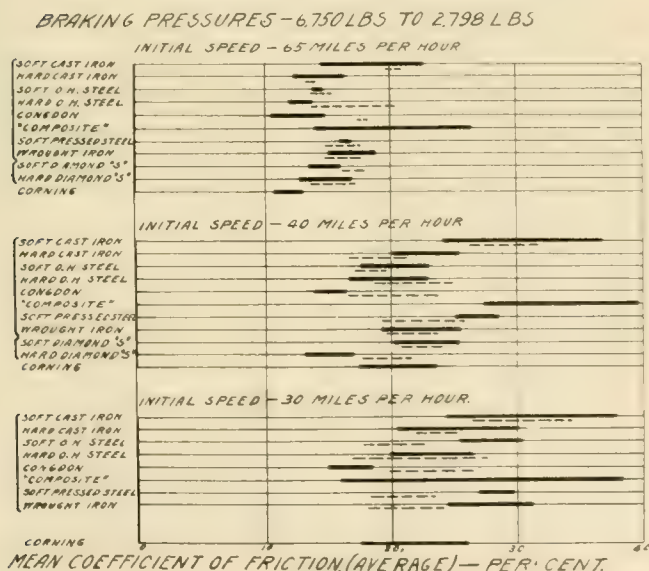 BRAKING PRESSURES - 6,750 LBS TO 2,798 LBS
INITIAL SPEED - 65 MILES PER HOUR
SOFT CAST IRON
HARD CAST IRON
SOFT O.H. STEEL
HARD O.H. STEEL
CONGDON
"COMPOSITE"
SOFT PRESSED STEEL
WROUGHT IRON
SOFT DIAMOND "S"
HARD DIAMOND "S"
CORNING
INITIAL SPEED - 40 MILES PER HOUR
SOFT CAST IRON
HARD CAST IRON
SOFT O.H. STEEL
HARD O.H STEEL
CONGDON
"COMPOSITE"
SOFT PRESSED STEEL
WROUGHT IRON
SOFT DIAMOND "S"
HARD DIAMOND "S"
CORNING
INITIAL SPEED - 30 MILES PER HOUR.
SOFT CAST IRON
HARD CAST IRON
SOFT O.H STEEL
HARD O.H STEEL
CONGDON
"COMPOSITE"
SOFT PRESSED STEEL
WROUGHT IRON
CORNING
0 10 20 30 40
MEAN COEFFICIENT OF FRICTION (AVERAGE) — PER. CENT.